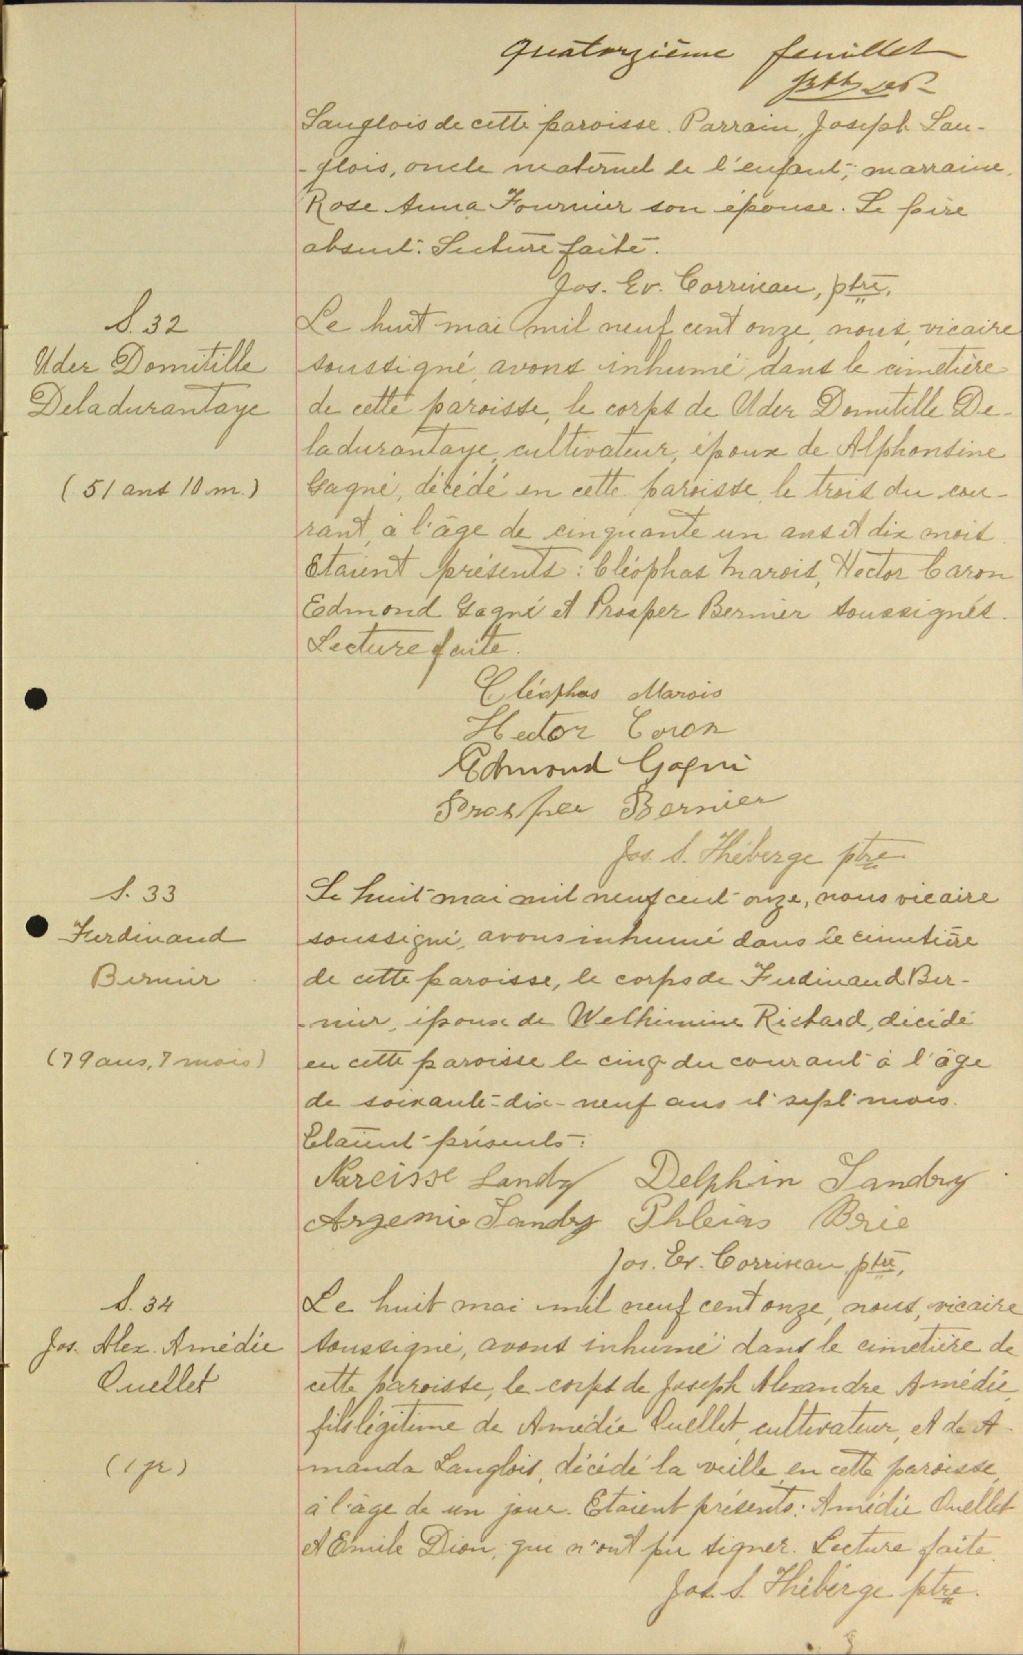 Quatorzième feuillet
Langlois de cette paroisse. Parrain, Joseph Lan-
-glois, oncle maternel de l'enfant; marraine,
Rose Anna Fournier son épouse. Le père
absent. Lecture faite.
Jos. Ev. Corriveau, ptre,
S. 32
Uder Domitille
Deladurantaye
(51 ans 10 m.)
Le huit mai mil neuf cent onze, nous, vicaire
soussigné, avons inhumé dans le cimetière
de cette paroisse, le corps de Uder Domitille De-
ladurantaye, cultivateur, époux de Alphonsine
Gagné, décédé en cette paroisse, le trois du cou-
rant, à l'âge de cinquante un ans et dix mois.
Etaient présents: Cléophas Marois, Hector Caron
Edmond Gagné et Prosper Bernier soussignés.
Lecture faite.
Cléophas Marois
Hector Caron
Edmond Gagné
Prosper Bernier
Jos. S. Théberge ptre
S. 33
Ferdinand
Bernier
(79 ans, 7 mois)
Le huit mai mil neuf cent onze, nous vicaire
soussigné, avons inhumé dans le cimetière
de cette paroisse, le corps de Ferdinand Ber-
-nier, époux de Welhimine Richard, décédé
en cette paroisse le cinq du courant à l'âge
de soixante-dix-neuf ans et sept mois.
Etaient présents:
Narcisse Landry Delphin Landry
Arzemie Landry Phleias Brie
Jos. Ev. Corriveau ptre,
S. 34
Jos. Alex. Amédée
Ouellet
(1 jr)
Le huit mai mil neuf cent onze, nous, vicaire
soussigné, avons inhumé dans le cimetière de
cette paroisse, le corps de Joseph Alexandre Amédée,
fils légitime de Amédée Ouellet, cultivateur, et de A-
manda Langlois, décédé la veille en cette paroisse,
à l'âge de un jour. Etaient présents: Amédée Ouellet
et Emile Dion, qui n'ont pu signer. Lecture faite.
Jos. S. Théberge ptre.